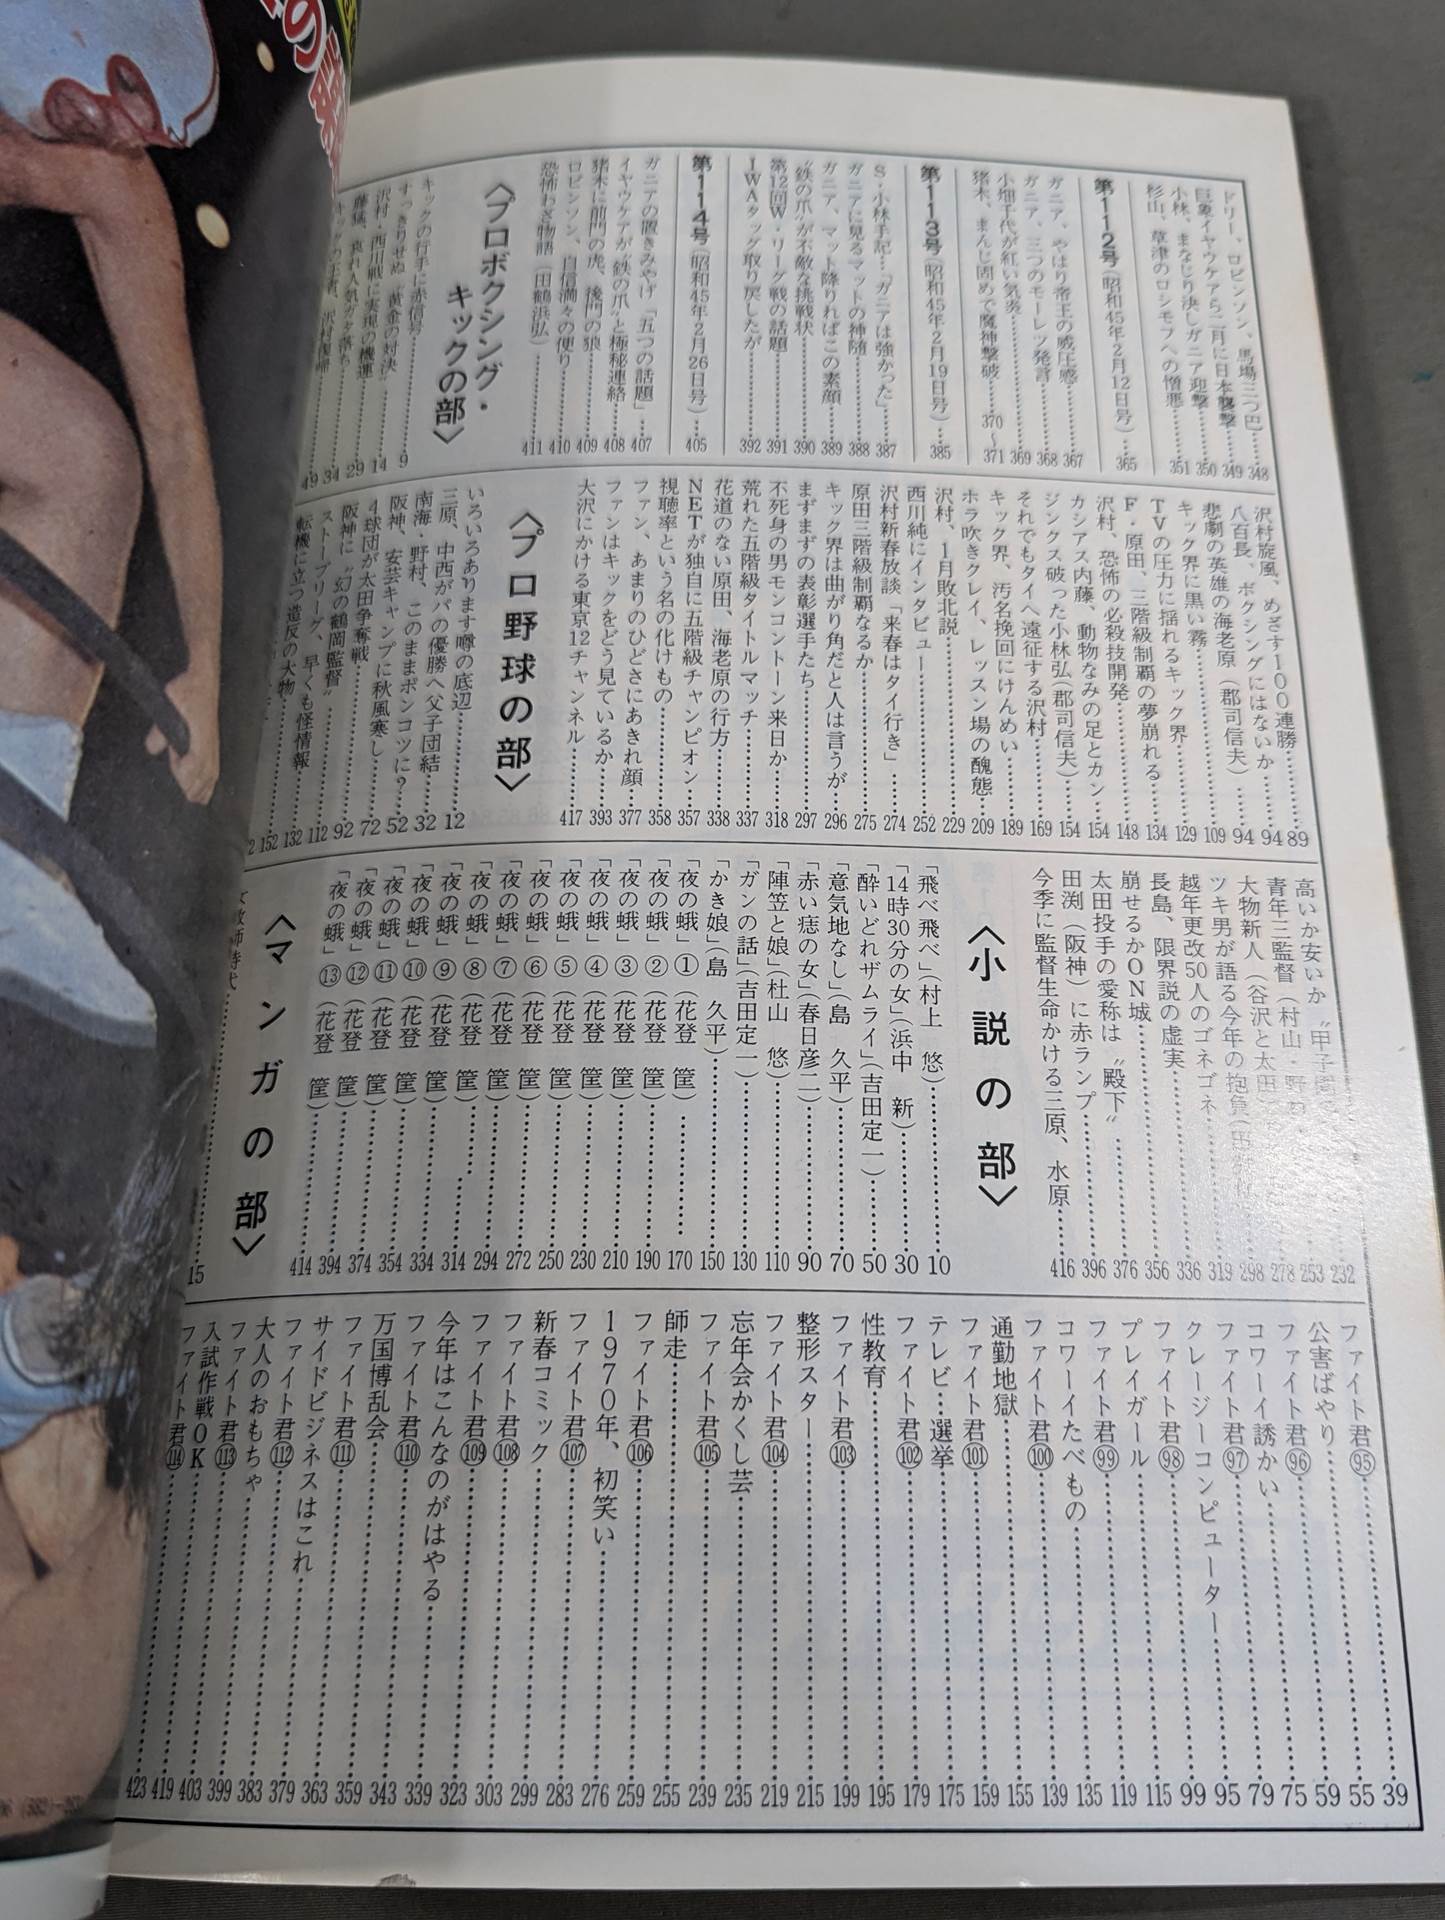 ドリー、ロビンソン、馬場三つ巴……348
巨象イヤウケアら二月に日本襲撃 349
小林、まなじり決しガニア迎撃……350
杉山、草津のロシモフへの憎悪……351
第112号(昭和45年2月12日号)…365
ガニア、やはり帝王の威圧感……367
ガニア、三つのモーレツ発言……368
小畑千代が紅い気炎……369
猪木、まんじ固めで魔神撃破……370〜371
第113号(昭和45年2月19日号)…385
S・小林手記…「ガニアは強かった」…387
ガニアに見るマットの神随……388
ガニア、マット降りればこの素顔 389
“鉄の爪”が不敵な挑戦状……390
第12回W・リーグ戦の話題……391
IWAタッグ取り戻したが……392
第114号(昭和45年2月26日号)…405
ガニアの置きみやげ「五つの話題」…407
イヤウケアが“鉄の爪”と極秘連絡 408
猪木に前門の虎、後門の狼……409
ロビンソン、自信満々の便り……410
恐怖わざ物語(田鶴浜弘)……411
〈プロボクシング・
キックの部〉
キックの行手に赤信号……9
すっきりせぬ“黄金の対決”……14
沢村・西川戦に実現の機運……29
藤猛、哀れ人気ガタ落ち……34
沢村復帰……49
沢村旋風、めざす100連勝……89
八百長、ボクシングにはないか……94
悲劇の英雄の海老原(郡司信夫)…94
キック界に黒い霧……109
TVの圧力に揺れるキック界……129
F・原田、三階級制覇の夢崩れる…134
沢村、恐怖の必殺技開発……148
カシアス内藤、動物なみの足とカン…154
ジンクス破った小林弘(郡司信夫)…154
それでもタイへ遠征する沢村……169
キック界、汚名挽回にけんめい……189
ホラ吹きクレイ、レッスン場の醜態…209
沢村、1月敗北説……229
西川純にインタビュー……252
沢村新春放談「来春はタイ行き」…274
原田三階級制覇なるか……275
キック界は曲がり角だと人は言うが…296
まずまずの表彰選手たち……297
不死身の男モンコントーン来日か…318
荒れた五階級タイトルマッチ……337
花道のない原田、海老原の行方……338
NETが独自に五階級チャンピオン…357
視聴率という名の化けもの……358
ファン、あまりのひどさにあきれ顔 377
ファンはキックをどう見ているか…393
大沢にかける東京12チャンネル……417
〈プロ野球の部〉
いろいろあります噂の底辺……12
三原、中西がパの優勝へ父子団結 32
南海・野村、このままポンコツに?…52
阪神、安芸キャンプに秋風寒し……72
4球団が太田争奪戦……92
阪神に“幻の鶴岡監督”……112
ストーブリーグ、早くも怪情報……132
転機に立つ造反の大物……152
高いか安いか“甲子園……232
青年三監督(村山・野村・……253
大物新人(谷沢と太田……278
ツキ男が語る今年の抱負……298
越年更改50人のゴネゴネ……319
長島、限界説の虚実……336
崩せるかON城……356
太田投手の愛称は“殿下”……376
田渕(阪神)に赤ランプ……396
今季に監督生命かける三原、水原…416
〈小説の部〉
「飛べ飛べ」村上 悠)……10
「14時30分の女」(浜中 新)……30
「酔いどれザムライ」(吉田定一)……50
「意気地なし」(島 久平)……70
「赤い痣の女」(春日彦二)……90
「陣笠と娘」(杜山 悠)……110
「ガンの話」(吉田定一)……130
「かき娘」(島 久平)……150
「夜の蛾」①(花登 筐)……170
「夜の蛾」②(花登 筐)……190
「夜の蛾」③(花登 筐)……210
「夜の蛾」④(花登 筐)……230
「夜の蛾」⑤(花登 筐)……250
「夜の蛾」⑥(花登 筐)……272
「夜の蛾」⑦(花登 筐)……294
「夜の蛾」⑧(花登 筐)……314
「夜の蛾」⑨(花登 筐)……334
「夜の蛾」⑩(花登 筐)……354
「夜の蛾」⑪(花登 筐)……374
「夜の蛾」⑫(花登 筐)……394
「夜の蛾」⑬(花登 筐)……414
〈マンガの部〉
女教師時代……15
ファイト君㉟……39
公害ばやり……55
ファイト君㊱……59
コワーイ誘かい……75
ファイト君(97)……79
クレージーコンピューター……95
ファイト君(98)……99
プレイガール……115
ファイト君(99)……119
コワーイたべもの……135
ファイト君(100)……139
通勤地獄……155
ファイト君(101)……159
テレビ…選挙……175
ファイト君(102)……179
性教育……195
ファイト君(103)……199
整形スター……215
ファイト君(104)……219
忘年会かくし芸……235
ファイト君(105)……239
師走……255
ファイト君(106)……259
1970年、初笑い……276
ファイト君(107)……283
新春コミック……299
ファイト君(108)……303
ファイト君(109)……323
今年はこんなのがはやる……339
ファイト君(110)……343
万国博乱会……359
ファイト君(111)……363
サイドビジネスはこれ……379
ファイト君(112)……383
大人のおもちゃ……399
ファイト君(113)……403
入試作戦OK……419
ファイト君(114)……423